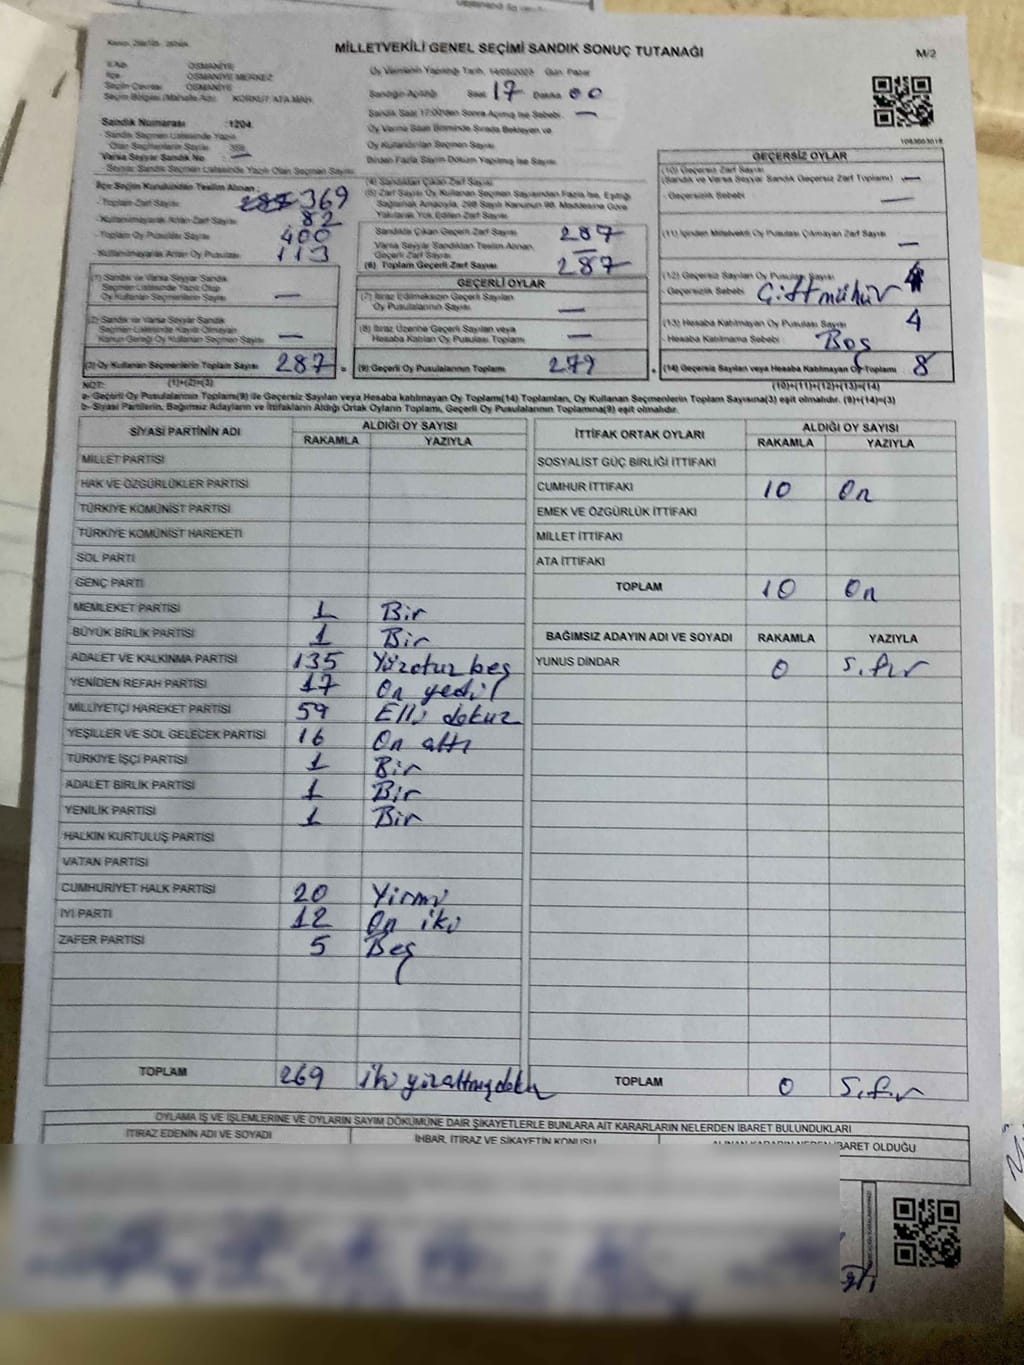 MİLLETVEKİLİ GENEL SEÇİMİ SANDIK SONUÇ TUTANAĞI
M/2
İl Adı OSMANİYE
İlçe OSMANİYE MERKEZ
Seçim Çevresi OSMANİYE
Seçim Bölgesi (Mahalle Adı) KORKUT ATA MAH.
Oy Vermenin Yapıldığı Tarih, 14/05/2023 Gün Pazar
Sandığın Açıldığı Saat 17 Dakika 00
Sandık Saat 17:00'den Sonra Açılmış İse Sebebi —
Oy Verme Saati Bitiminde Sırada Bekleyen ve
Oy Kullandırılan Seçmen Sayısı
Birden Fazla Sayım Döküm Yapılmış İse Sayısı
Sandık Numarası :1204
Sandık Seçmen Listesinde Yazılı
Olan Seçmenlerin Sayısı
Varsa Seyyar Sandık No —
Seyyar Sandık Seçmen Listesinde Yazılı Olan Seçmen Sayısı
İlçe Seçim Kurulundan Teslim Alınan :
- Toplam Zarf Sayısı 287 369
- Kullanılmayarak Artan Zarf Sayısı 82
- Toplam Oy Pusulası Sayısı 400
- Kullanılmayarak Artan Oy Pusulası 113
(1) Sandık ve Varsa Seyyar Sandık
Seçmen Listesinde Yazılı Olup
Oy Kullanan Seçmenlerin Sayısı —
(2) Sandık ve Varsa Seyyar Sandık
Seçmen Listesinde Kayıtlı Olmayan
Kanun Gereği Oy Kullanan Seçmen Sayısı —
(3) Oy Kullanan Seçmenlerin Toplam Sayısı 287
(1)+(2)=(3)
(4) Sandıktan Çıkan Zarf Sayısı
(5) Zarf Sayısı Oy Kullanan Seçmen Sayısından Fazla İse, Eşitliği
Sağlamak Amacıyla, 298 Sayılı Kanunun 98. Maddesine Göre
Yakılarak Yok Edilen Zarf Sayısı
Sandıkta Çıkan Geçerli Zarf Sayısı 287
Varsa Seyyar Sandıktan Teslim Alınan
Geçerli Zarf Sayısı —
(6) Toplam Geçerli Zarf Sayısı 287
GEÇERLİ OYLAR
(7) İtiraz Edilmeksizin Geçerli Sayılan
Oy Pusulalarının Sayısı —
(8) İtiraz Üzerine Geçerli Sayılan veya
Hesaba Katılan Oy Pusulası Toplamı —
(9) Geçerli Oy Pusulalarının Toplamı 279
GEÇERSİZ OYLAR
(10) Geçersiz Zarf Sayısı
(Sandık ve Varsa Seyyar Sandık Geçersiz Zarf Toplamı) —
- Geçersizlik Sebebi —
(11) İçinden Milletvekili Oy Pusulası Çıkmayan Zarf Sayısı —
(12) Geçersiz Sayılan Oy Pusulası Sayısı 4
- Geçersizlik Sebebi Çift mühür
(13) Hesaba Katılmayan Oy Pusulası Sayısı 4
- Hesaba Katılmama Sebebi Boş
(14) Geçersiz Sayılan veya Hesaba Katılmayan Oy Toplamı 8
(10)+(11)+(12)+(13)=(14)
NOT:
a- Geçerli Oy Pusulalarının Toplamı(9) ile Geçersiz Sayılan veya Hesaba katılmayan Oy Toplamı(14) Toplamları, Oy Kullanan Seçmenlerin Toplam Sayısına(3) eşit olmalıdır. (9)+(14)=(3)
b- Siyasi Partilerin, Bağımsız Adayların ve İttifakların Aldığı Ortak Oyların Toplamı, Geçerli Oy Pusulalarının Toplamına(9) eşit olmalıdır.
SİYASİ PARTİNİN ADI
ALDIĞI OY SAYISI
RAKAMLA YAZIYLA
MİLLET PARTİSİ
HAK VE ÖZGÜRLÜKLER PARTİSİ
TÜRKİYE KOMÜNİST PARTİSİ
TÜRKİYE KOMÜNİST HAREKETİ
SOL PARTİ
GENÇ PARTİ
MEMLEKET PARTİSİ 1 Bir
BÜYÜK BİRLİK PARTİSİ 1 Bir
ADALET VE KALKINMA PARTİSİ 135 Yüzotuz beş
YENİDEN REFAH PARTİSİ 17 On yedi
MİLLİYETÇİ HAREKET PARTİSİ 59 Elli dokuz
YEŞİLLER VE SOL GELECEK PARTİSİ 16 On altı
TÜRKİYE İŞÇİ PARTİSİ 1 Bir
ADALET BİRLİK PARTİSİ 1 Bir
YENİLİK PARTİSİ 1 Bir
HALKIN KURTULUŞ PARTİSİ
VATAN PARTİSİ
CUMHURİYET HALK PARTİSİ 20 Yirmi
İYİ PARTİ 12 On iki
ZAFER PARTİSİ 5 Beş
TOPLAM 269 iki yüz altmış dokuz
İTTİFAK ORTAK OYLARI
ALDIĞI OY SAYISI
RAKAMLA YAZIYLA
SOSYALİST GÜÇ BİRLİĞİ İTTİFAKI
CUMHUR İTTİFAKI 10 On
EMEK VE ÖZGÜRLÜK İTTİFAKI
MİLLET İTTİFAKI
ATA İTTİFAKI
TOPLAM 10 On
BAĞIMSIZ ADAYIN ADI VE SOYADI RAKAMLA YAZIYLA
YUNUS DİNDAR 0 Sıfır
TOPLAM 0 Sıfır
OYLAMA İŞ VE İŞLEMLERİNE VE OYLARIN SAYIM DÖKÜMÜNE DAİR ŞİKAYETLERLE BUNLARA AİT KARARLARIN NELERDEN İBARET BULUNDUKLARI
İTİRAZ EDENİN ADI VE SOYADI
İHBAR, İTİRAZ VE ŞİKAYETİN KONUSU
ALINAN KARARIN NEDEN İBARET OLDUĞU